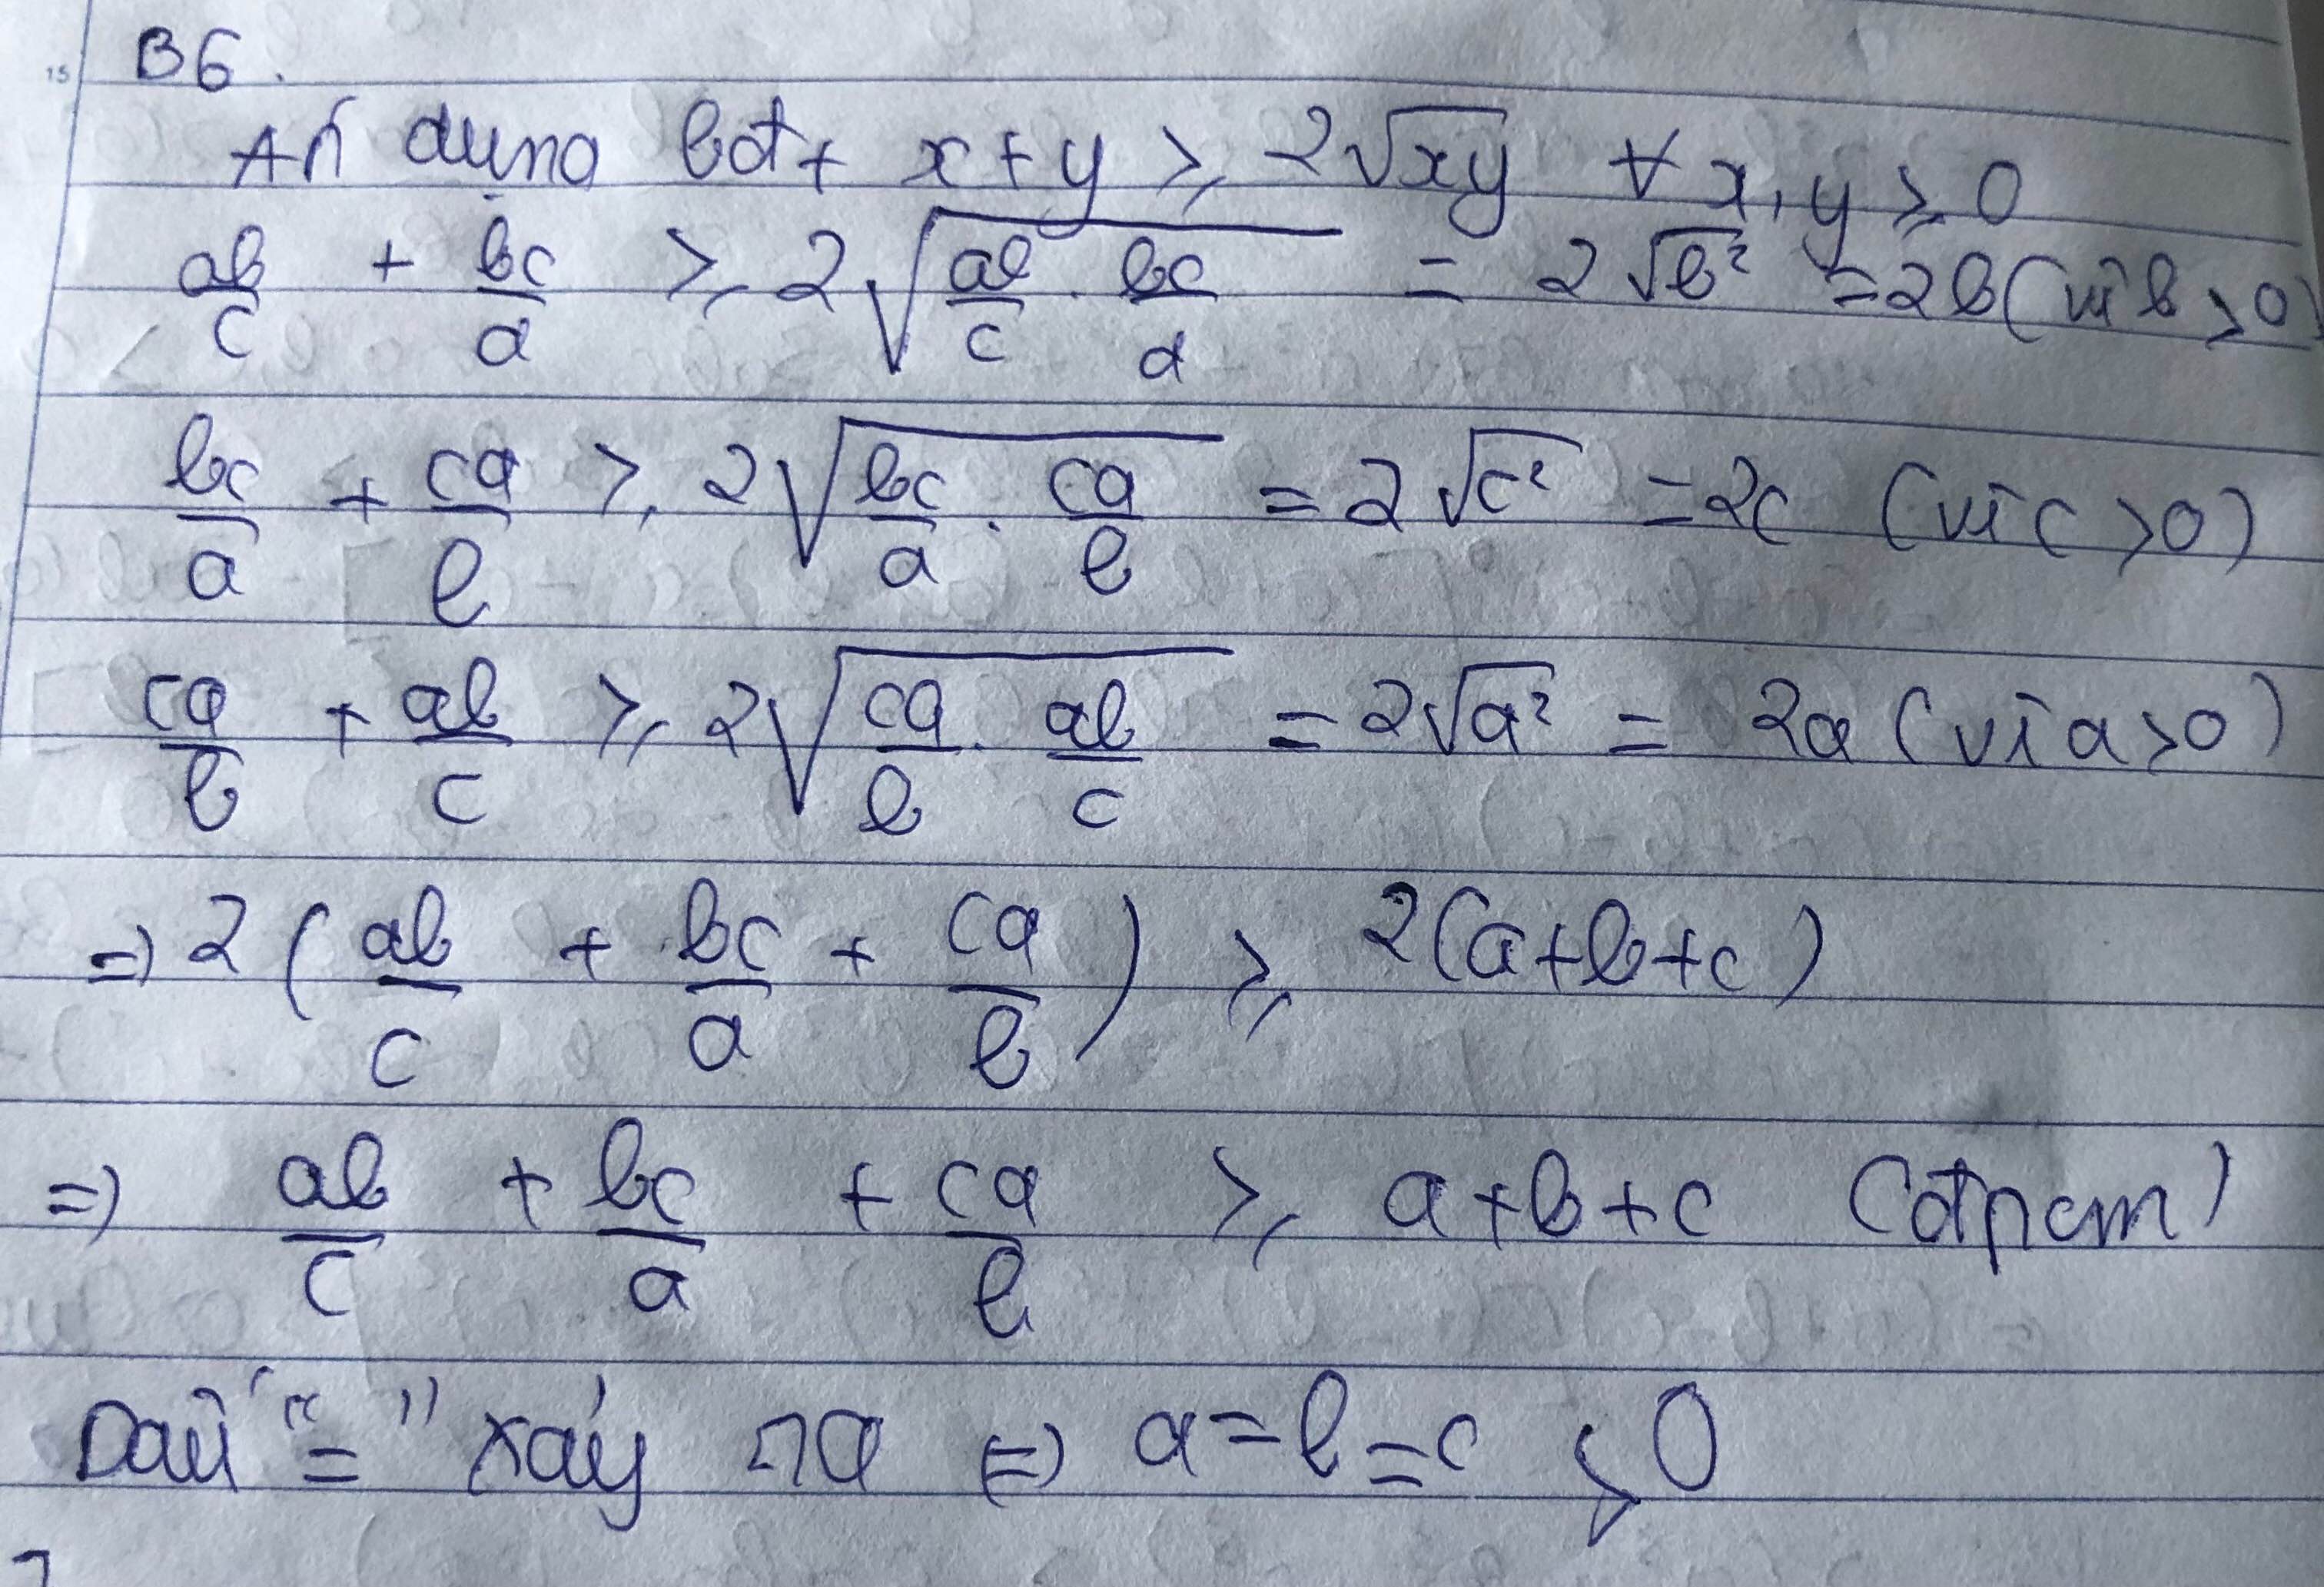 15
B6.
Áp dụng bđt x+y ≥ 2√xy ∀ x,y ≥ 0
ab/c + bc/a ≥ 2√(ab/c . bc/a) = 2√b² = 2b (vì b > 0)
bc/a + ca/b ≥ 2√(bc/a . ca/b) = 2√c² = 2c (vì c > 0)
ca/b + ab/c ≥ 2√(ca/b . ab/c) = 2√a² = 2a (vì a > 0)
⇒ 2(ab/c + bc/a + ca/b) ≥ 2(a+b+c)
⇒ ab/c + bc/a + ca/b ≥ a+b+c (đpcm)
Dấu "=" xảy ra ⇔ a=b=c > 0